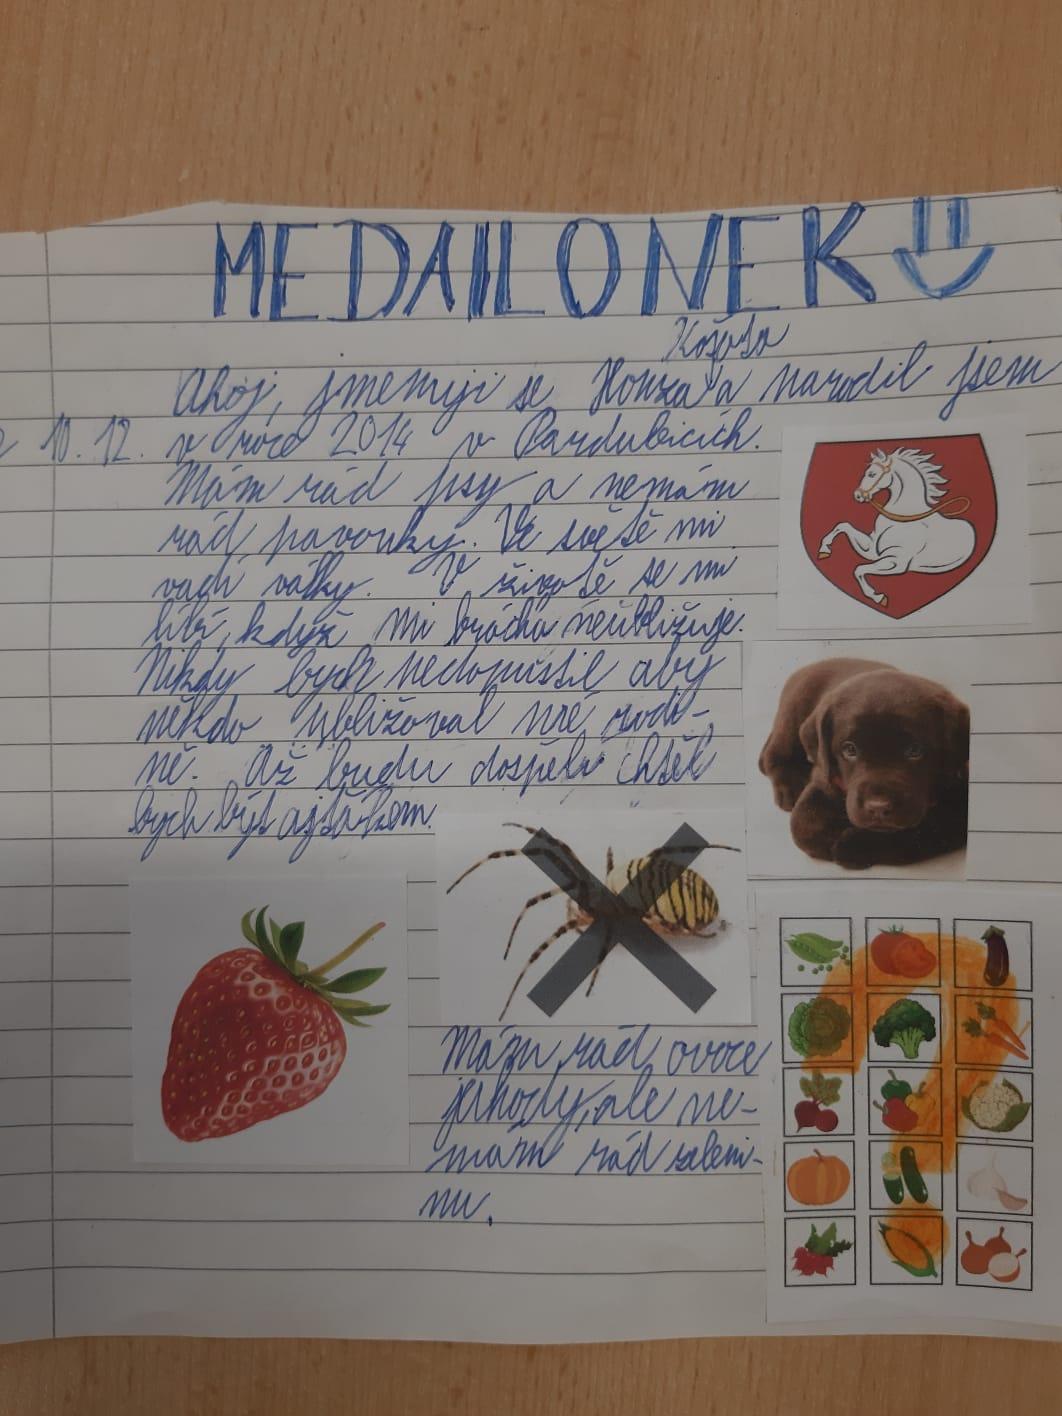 MEDAILONEK
Ahoj, jmenuji se Honza a narodil jsem
10. 12. v roce 2014 v Pardubicích.
Mám rád psy a nemám
rád pavouky. Ve světě mi
vadí války. V životě se mi
líbí, když mi brácha neubližuje.
Nikdy bych nedopustil aby
někdo ubližoval mé rodi-
ně. Až budu dospělí chtěl
bych být ajťákem.
Mám rád ovoce
jahody, ale ne-
mám rád zeleni-
nu.